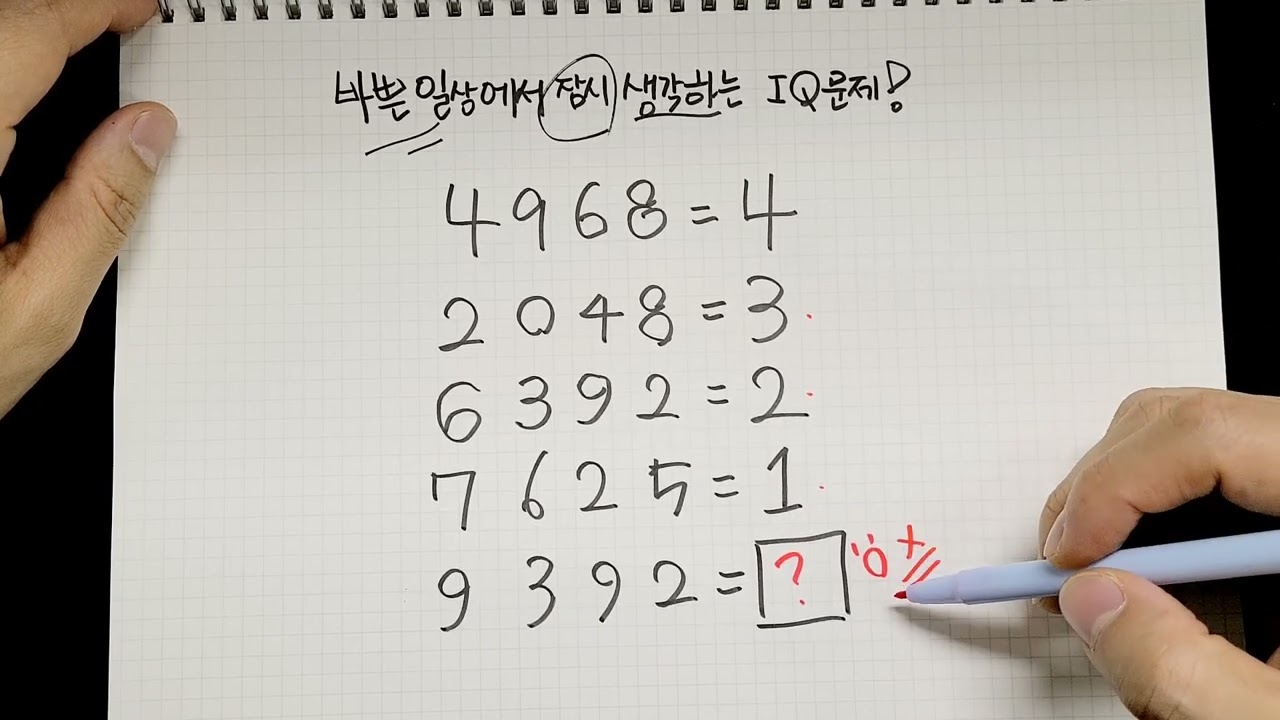 바쁜 일상에서 잠시 생각하는 IQ문제!
4 9 6 8 = 4
2 0 4 8 = 3
6 3 9 2 = 2
7 6 2 5 = 1
9 3 9 2 = ? '0' X